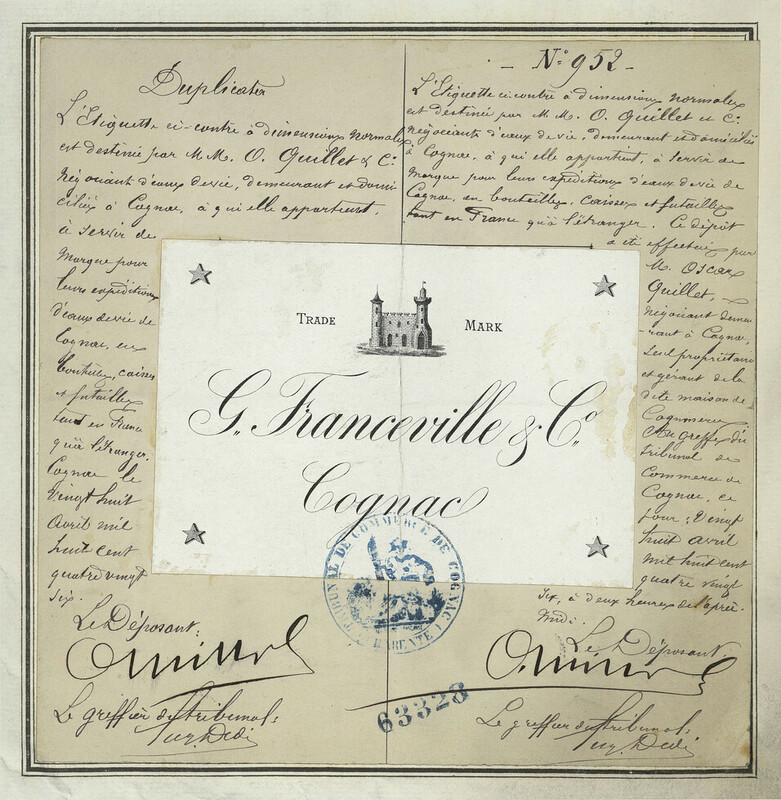 Duplicata
L'Etiquette ci-contre à dimensions normales
est destinée par M M. O. Quillet & Cie
négociant d'eaux de vie, demeurant et domi
ciliés à Cognac, à qui elle appartient,
à servir de
Marque pour
leurs expéditions
d'eaux de vie de
Cognac, en
bouteilles, caisses
et futailles
tant en France
qu'à l'étranger.
Cognac le
vingt huit
avril mil
huit cent
quatre vingt
six.
Le Déposant:
Le greffier du tribunal:
- No 952 -
L'Etiquette ci-contre à dimensions normales
est destinée par M M. O. Quillet et Cie
négociants d'eaux de vie, demeurant et domiciliés
à Cognac, à qui elle appartient, à servir de
Marque pour leurs expéditions d'eaux de vie de
Cognac, en bouteilles, caisses et futailles
tant en France qu'à l'étranger. Ce dépôt
a été effectué par
M. Oscar
Quillet,
négociant demeu
rant à Cognac,
seul propriétaire
et gérant de la
dite maison de
Commerce
Au greffe du
tribunal de
Commerce de
Cognac, ce
jour; vingt
huit avril
mil huit cent
quatre vingt
six, à deux heures de l'après
midi.
Le Déposant:
Le greffier du tribunal:
TRADE MARK
G. Franceville & Co.
Cognac
TRIBUNAL DE COMMERCE DE COGNAC
CHARENTE
63328